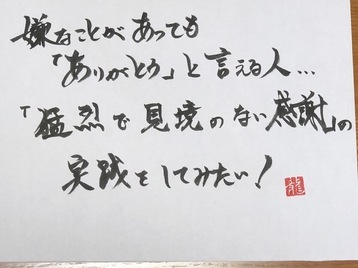 嫌なことがあっても
「ありがとう」と言える人…
「猛烈で見境のない感謝」の
実践をしてみたい!
龍